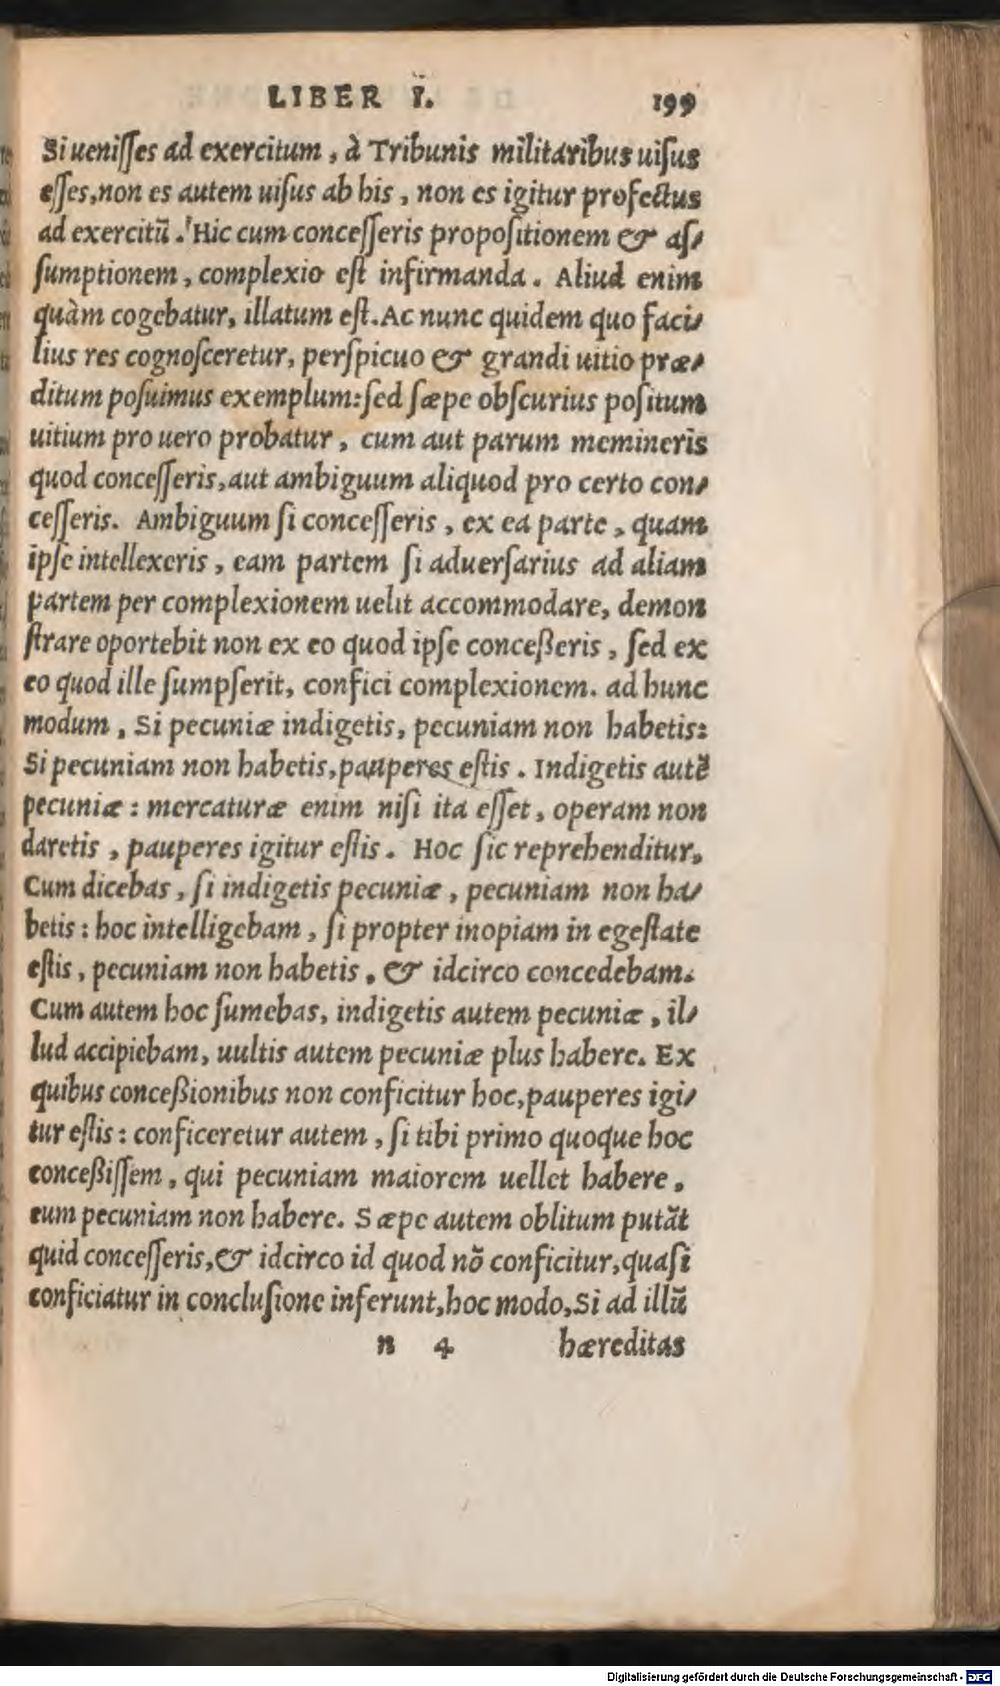 LIBER I. 199
Si ueniſſes ad exercitum, à Tribunis militaribus uiſus
eſſes, non es autem uiſus ab his, non es igitur profectus
ad exercitũ. Hic cum conceſſeris propoſitionem & aſ-
ſumptionem, complexio eſt infirmanda. Aliud enim
quàm cogebatur, illatum eſt. Ac nunc quidem quo faci-
lius res cognoſceretur, perſpicuo & grandi uitio præ-
ditum poſuimus exemplum: ſed ſæpe obſcurius poſitum
uitium pro uero probatur, cum aut parum memineris
quod conceſſeris, aut ambiguum aliquod pro certo con-
ceſſeris. Ambiguum ſi conceſſeris, ex ea parte, quam
ipſe intellexeris, eam partem ſi aduerſarius ad aliam
partem per complexionem uelit accommodare, demon
ſtrare oportebit non ex eo quod ipſe conceßeris, ſed ex
eo quod ille ſumpſerit, confici complexionem. ad hunc
modum, Si pecuniæ indigetis, pecuniam non habetis:
Si pecuniam non habetis, pauperes eſtis. Indigetis autẽ
pecuniæ: mercaturæ enim niſi ita eſſet, operam non
daretis, pauperes igitur eſtis. Hoc ſic reprehenditur,
Cum dicebas, ſi indigetis pecuniæ, pecuniam non ha-
betis: hoc intelligebam, ſi propter inopiam in egeſtate
eſtis, pecuniam non habetis, & idcirco concedebam.
Cum autem hoc ſumebas, indigetis autem pecuniæ, il-
lud accipiebam, uultis autem pecuniæ plus habere. Ex
quibus conceßionibus non conficitur hoc, pauperes igi-
tur eſtis: conficeretur autem, ſi tibi primo quoque hoc
conceßiſſem, qui pecuniam maiorem uellet habere,
eum pecuniam non habere. Sæpe autem oblitum putãt
quid conceſſeris, & idcirco id quod nõ conficitur, quaſi
conficiatur in concluſione inferunt, hoc modo, Si ad illũ
n 4 hæreditas
Digitalisierung gefördert durch die Deutsche Forschungsgemeinschaft - DFG